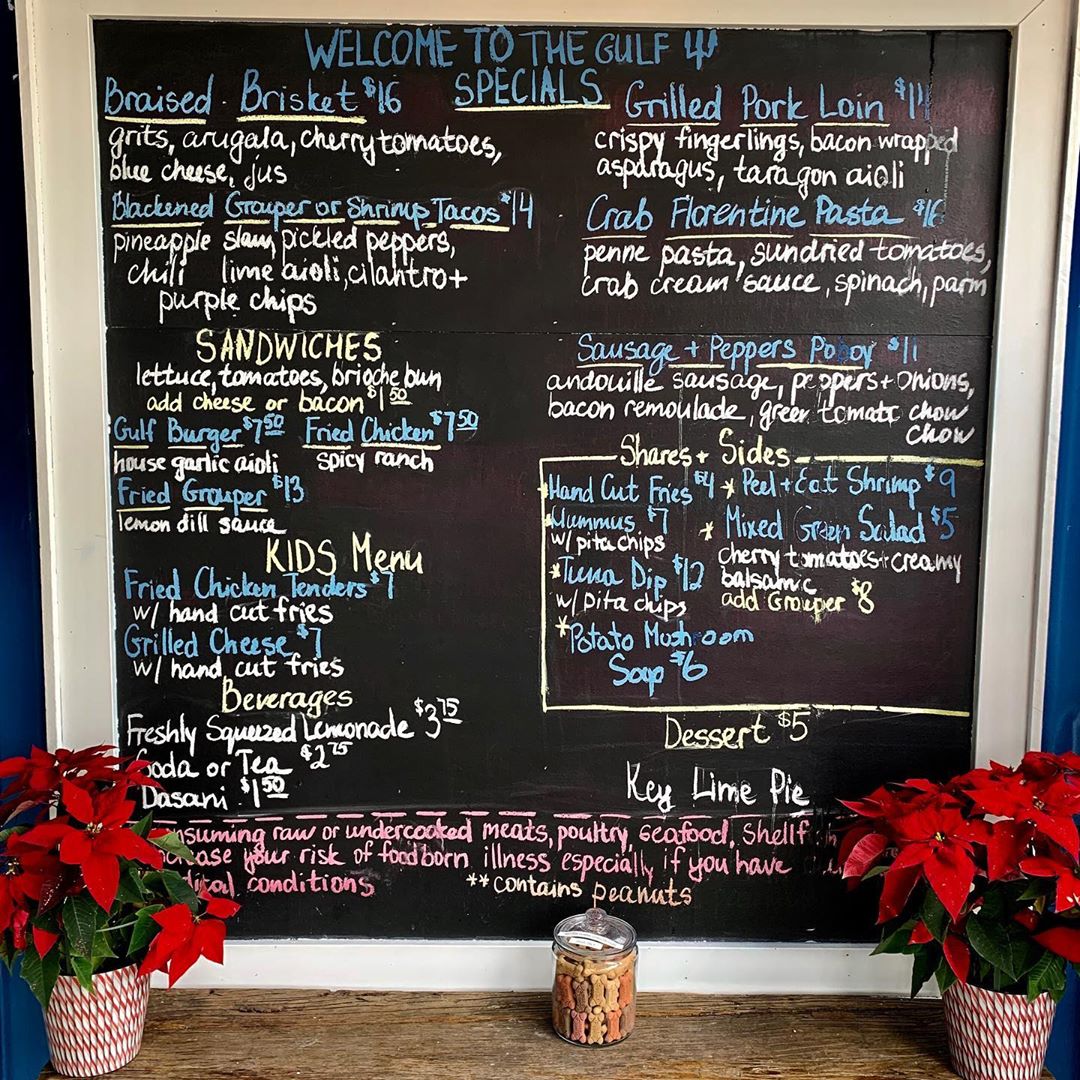 WELCOME TO THE GULF
SPECIALS
Braised Brisket $16
grits, arugala, cherry tomatoes,
blue cheese, jus
Blackened Grouper or Shrimp Tacos $14
pineapple slaw, pickled peppers,
chili lime aioli, cilantro +
purple chips
Grilled Pork Loin
crispy fingerlings, bacon wrapped
asparagus, taragon aioli
Crab Florentine Pasta $16
penne pasta, sundried tomatoes,
crab cream sauce, spinach, parm
SANDWICHES
lettuce, tomatoes, brioche bun
add cheese or bacon $1 50
Gulf Burger $7 50 Fried Chicken $7 50
house garlic aioli spicy ranch
Fried Grouper $13
lemon dill sauce
KIDS Menu
Fried Chicken Tenders $7
w/ hand cut fries
Grilled Cheese $7
w/ hand cut fries
Beverages
Freshly Squeezed Lemonade $3 75
Soda or Tea $2 75
Dasani $1 50
Sausage + Peppers Poboy $11
andouille sausage, peppers + onions,
bacon remoulade, green tomato chow
chow
Shares + Sides
*Hand Cut Fries $4
*Hummus $7
w/ pita chips
*Tuna Dip $12
w/ pita chips
*Potato Mushroom
Soup $6
*Peel + Eat Shrimp $9
*Mixed Green Salad $5
cherry tomatoes + creamy
balsamic
add Grouper $8
Dessert $5
Key Lime Pie
raw or undercooked meats, poultry, seafood,
your risk of foodborn illness especially if you have
conditions
**contains peanuts